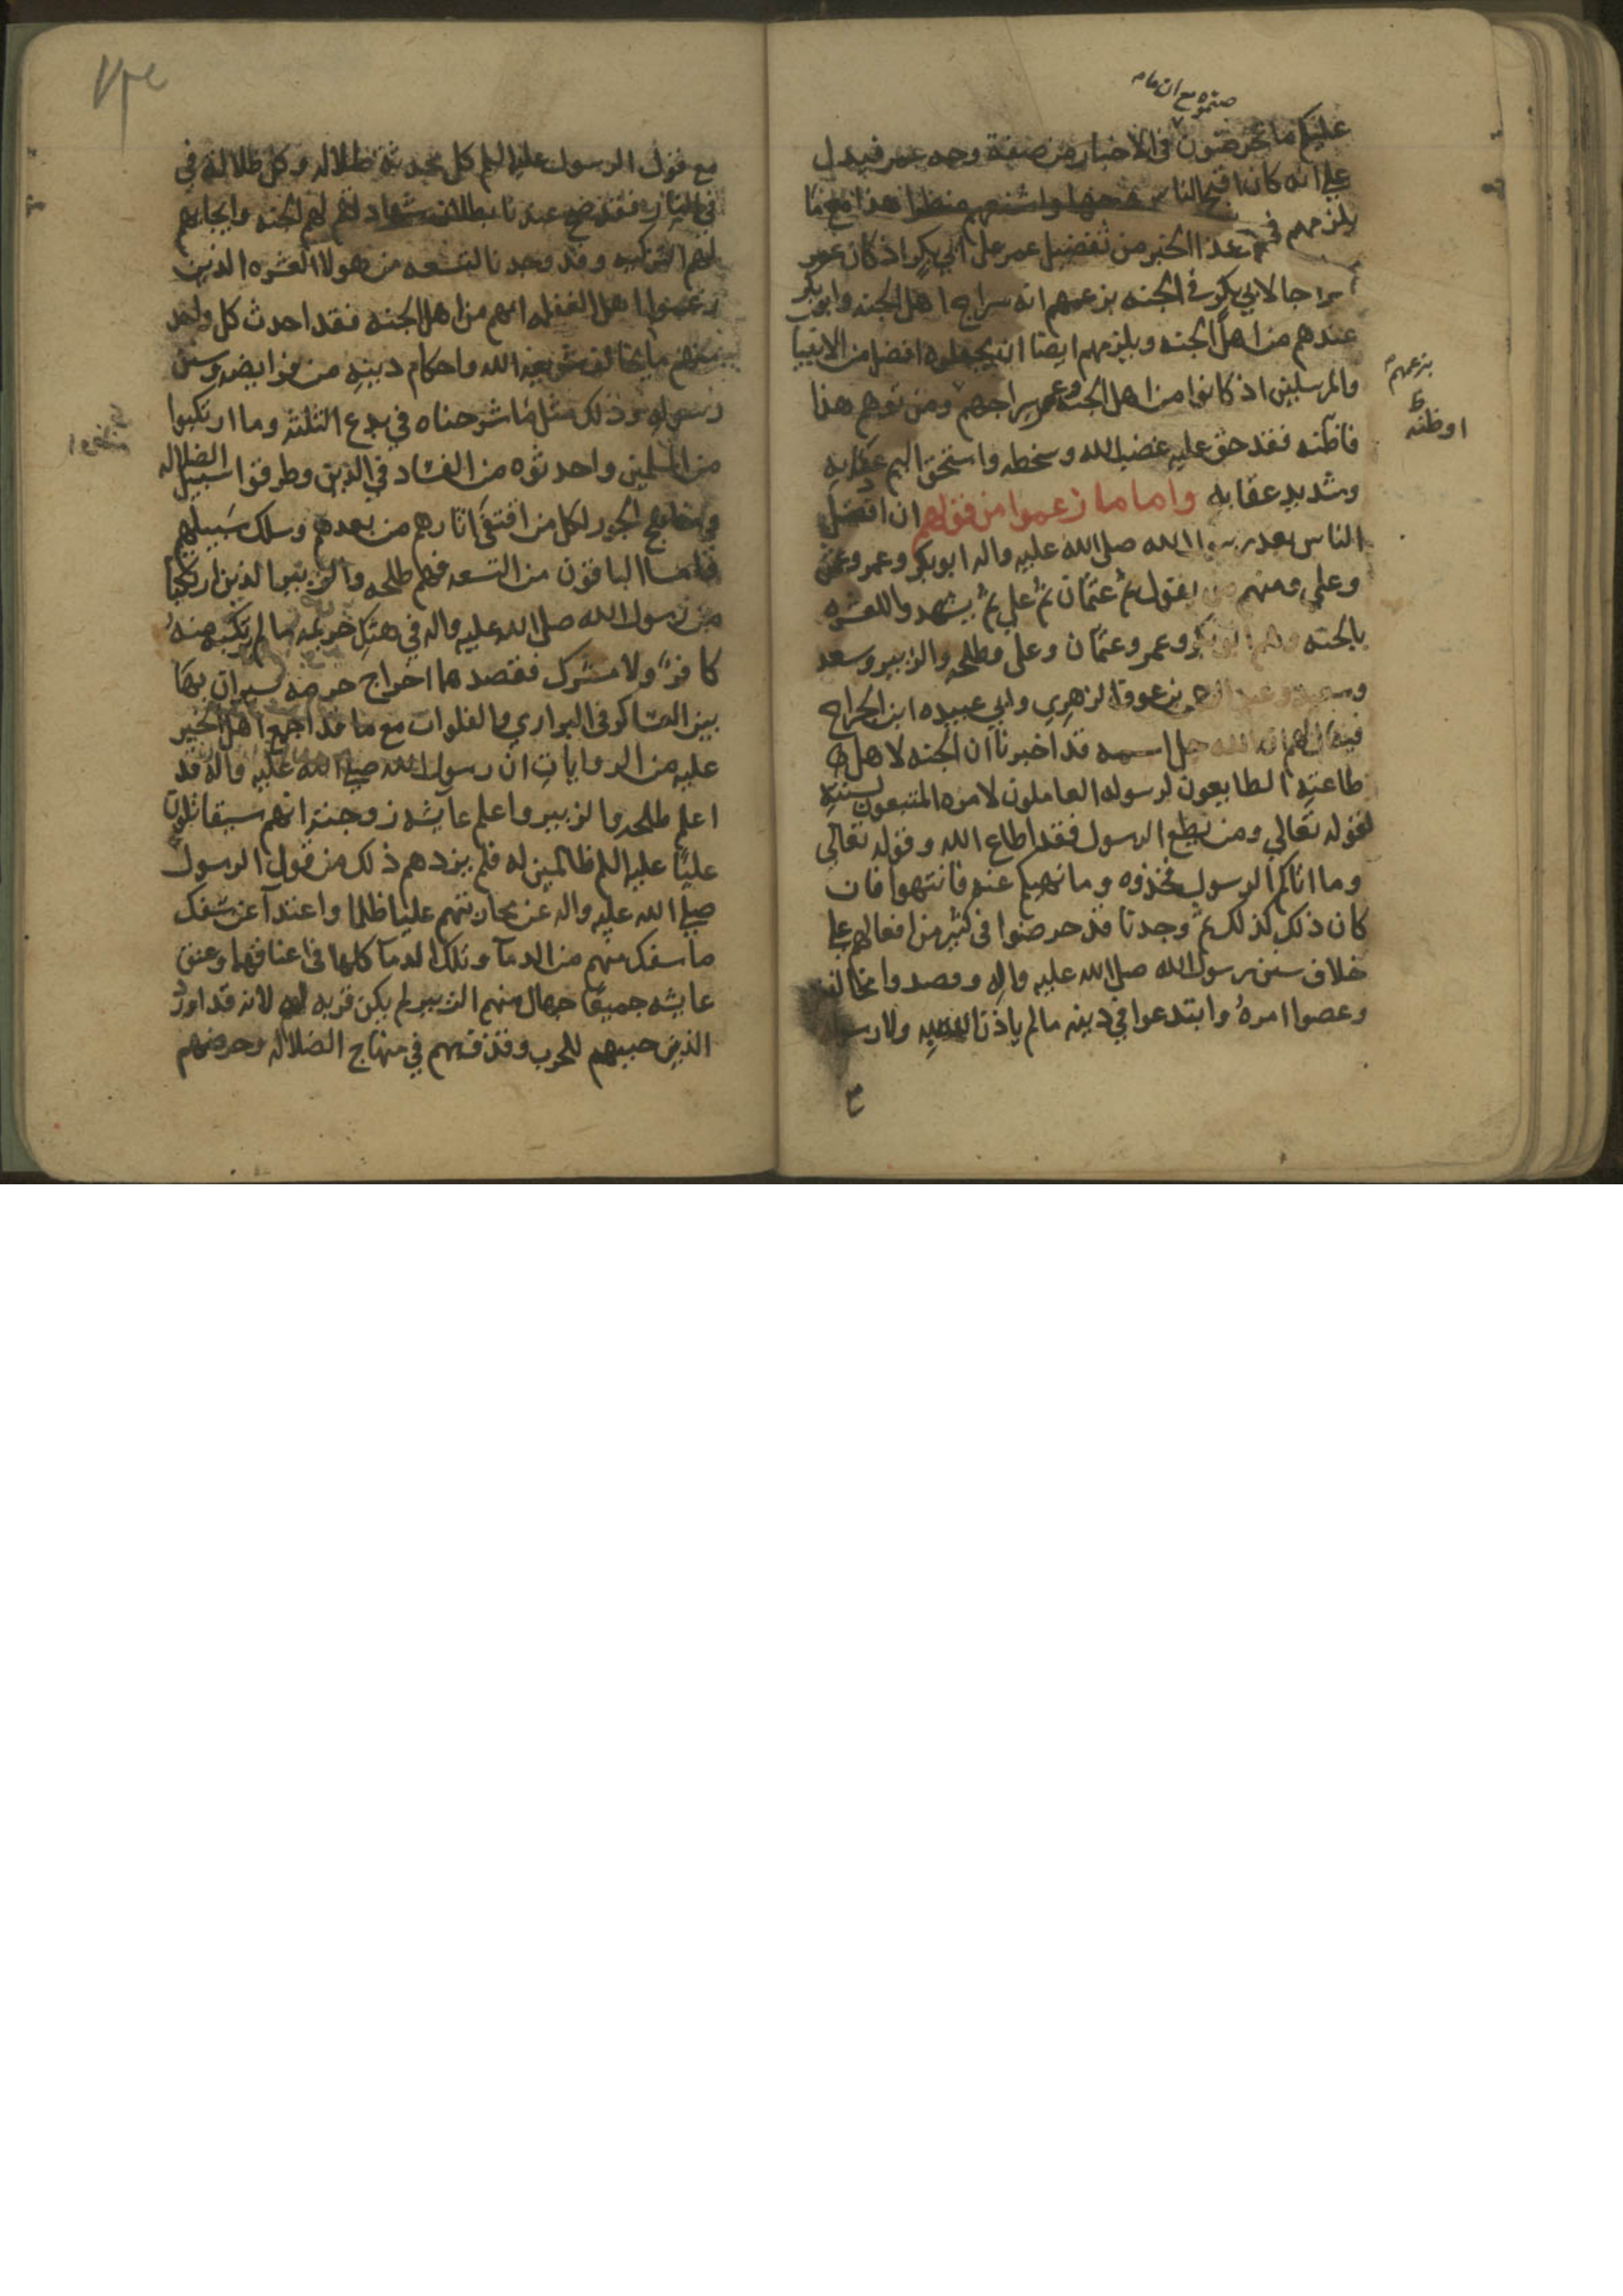 صنتموه مع ان ما
عليكم ما تخرصتون في الاخبار من صفة وجه عمر فيدل
علي انه كان اقبح الناس وجها واشنعهم منظرا هذا مع ما
يلزمهم في هذا الخبر من تفضيل عمر على ابي بكر اذ كان عمر
سراجا لابي بكر في الجنه بزعمهم انه سراج اهل الجنه وابو بكر
عندهم من اهل الجنه ويلزمهم ايضا ان يجعلوه افضل من الانبيا
والمرسلين اذ كانوا من اهل الجنه وعمر سراجهم ومن توهم هذا
بزعمهم
او ظنه
فقد حق عليه غضب الله وسخطه واستحق اليم عذابه
وشديد عقابه واما ما زعموا من قولهم ان افضل
الناس بعد رسول الله صلى الله عليه واله ابو بكر وعمر وعثمن
وعلي ومنهم من يقول ثم عثمان ثم علي ثم يشهدوا للعشره
بالجنه وهم ابو بكر وعمر وعثمان وعلى وطلحه والزبير وسعد
وسعيد وعبد الرحمن بن عوف الزهري وابي عبيده ابن الجراح
فيقال لهم ان الله جل اسمه قد اخبرنا ان الجنه لاهل
طاعته الطايعون لرسوله العاملون لامره المتبعون لسنته
لقوله تعالي ومن يطع الرسول فقد اطاع الله وقوله تعالي
وما اتاكم الرسول فخذوه وما نهيكم عنه فانتهوا فان
كان ذلك كذلك ثم وجدنا قد حرصوا في كثير من افعالهم علي
خلاف سنن رسول الله صلى الله عليه واله وقصدوا مخالفته
وعصوا امره وابتدعوا في دينه ما لم ياذن الله به ولا رسوله
مع
مع قول الرسول عليه السلم كل محدثه ظلاله وكل ظلالة في
في النار فقد صح عندنا بطلان شهادتهم لهم الجنه وايجابهم
لهم التزكيه وقد وجدنا التسعه من هولا العشره الذين
زعموا اهل الغفله انهم من اهل الجنه فقد احدث كل واحد
منهم ما يخالف شريعة الله واحكام دينه من فرايضه وسنن
رسوله وذلك مثل ما شرحناه في بدع الثلثه وما ارتكبوا
من المسلمين واحدثوه من الفساد في الدين وطرقوا سبيل الضلاله
ومناهج الجور لكل من اقتفى اثارهم من بعدهم وسلك سبيلهم
فاما الباقون من التسعه فهم طلحه والزبير الذين ارتكبا
من رسول الله صلى الله عليه واله في هتك حريمه ما لم يرتكبه منه
كافر ولا مشرك فقصدهما اخراج حرمه يسيران بها
بين العساكر في البواري والفلوات مع ما قد اجمع اهل الخبر
عليه من الروايات ان رسول الله صلى الله عليه واله قد
اعلم طلحه والزبير واعلم عايشه زوجته انهم سيقاتلون
عليًا عليه السلم ظالمين له فلم يردهم ذلك من قول الرسول
صلي الله عليه واله عن محاربتهم عليًا ظلما واعتداً عن سفك
ما سفك منهم من الدمآ وتلك الدمآ كلها في اعناقهما وعنق
عايشه جميعًا حيال منهم الزبير لم يكن قربه لانه قد اورد
الذين حبيبهم للحرب وقذفهم في منهاج الضلاله وحرضهم